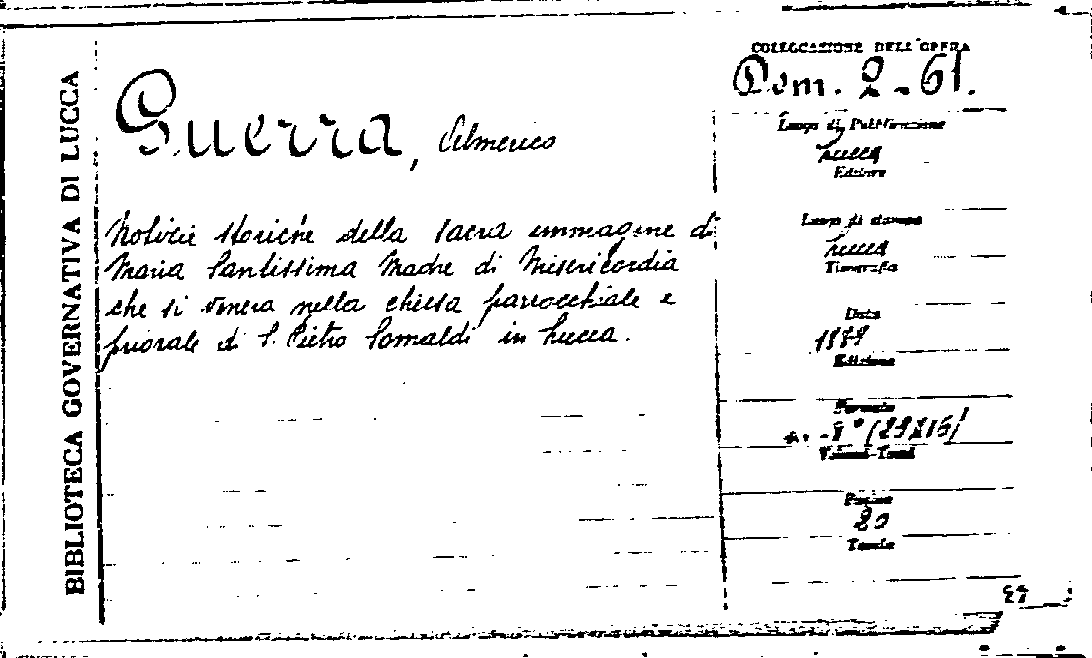 BIBLIOTECA GOVERNATIVA DI LUCCA
Guerra, Almerico
Notizie storiche della sacra immagine di
Maria Santissima Madre di Misericordia
che si venera nella chiesa parrocchiale e
priorale di S. Pietro Somaldi in Lucca.
COLLOCAZIONE DELL'OPERA
Dom. 2-61.
Luogo di Pubblicazione
Lucca
Editore
Luogo di stampa
Lucca
Tipografia
Data
Edizione
Formato
8° (23X15)
Volumi-Tomi
Pagine
20
Tavole